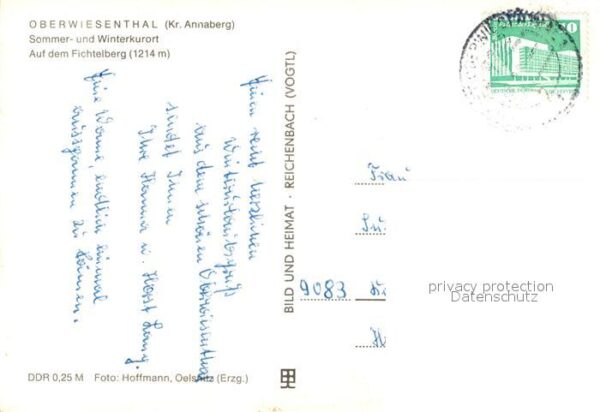 OBERWIESENTHAL (Kr. Annaberg)
Sommer- und Winterkurort
Auf dem Fichtelberg (1214 m)
Einen recht herzlichen
Winterurlaubsgruß
aus dem schönen Oberwiesenthal
sendet Ihnen
Ihre Hanna u. Horst
Eine Wonne, endlich einmal
ausspannen zu können.
DDR 0,25 M Foto: Hoffmann, Oelsnitz (Erzg.)
BILD UND HEIMAT · REICHENBACH (VOGTL)
Frau
9083
10
privacy protection
Datenschutz